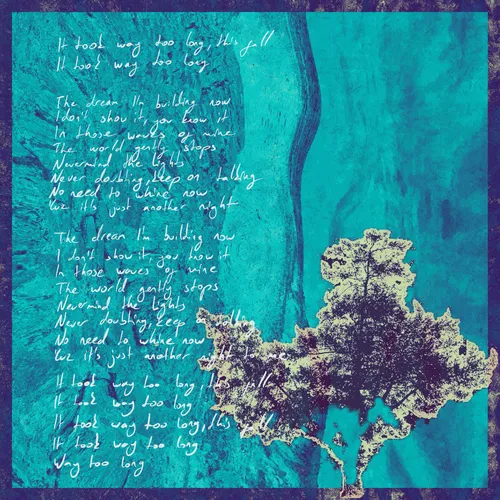 It took way too long, this fall
It took way too long
The dream I'm building now
I don't show it, you know it
In those waves of mine
The world gently stops
Nevermind the lights
Never doubting, keep on talking
No need to whine now
Cuz it's just another night
The dream I'm building now
I don't show it, you know it
In those waves of mine
The world gently stops
Nevermind the lights
Never doubting, keep
No need to whine now
Cuz it's just another night to me
It took way too long, this fall
It took way too long
It took way too long, this fall
It took way too long
Way too long